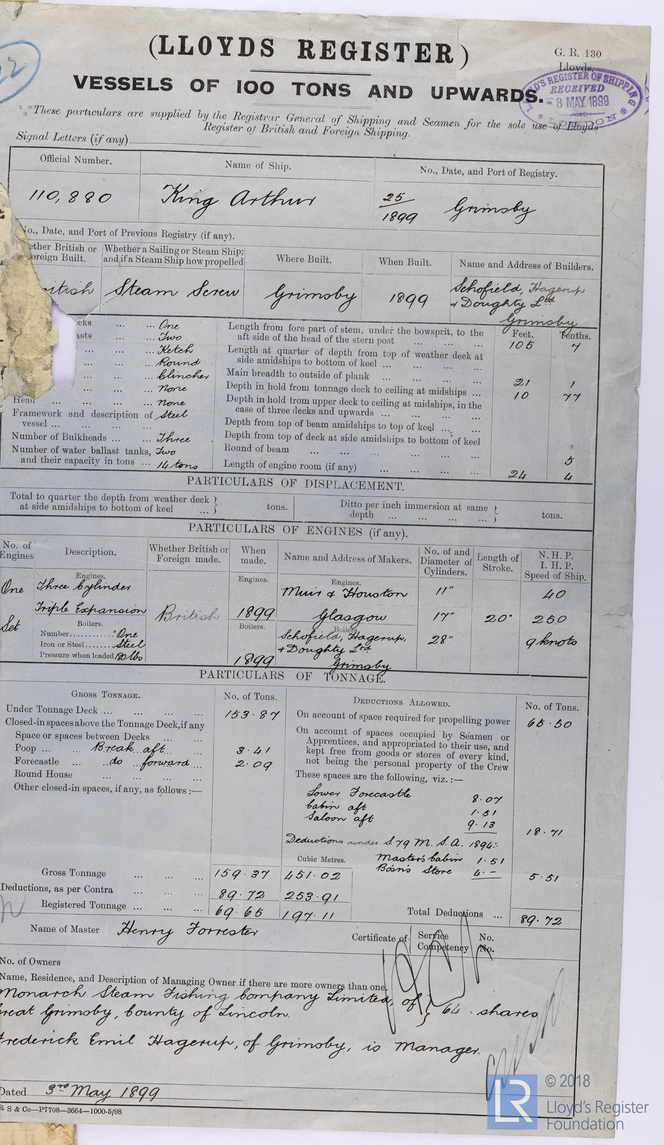 (LLOYDS REGISTER)
G. R. 130
Lloyds.
VESSELS OF 100 TONS AND UPWARDS.
LLOYD'S REGISTER OF SHIPPING
RECEIVED
- 8 MAY. 1899
These particulars are supplied by the Registrar General of Shipping and Seamen for the sole use of Lloyds
Register of British and Foreign Shipping.
Signal Letters (if any)
Official Number. Name of Ship. No., Date, and Port of Registry.
110,880 King Arthur 25/1899 Grimsby
No., Date, and Port of Previous Registry (if any).
ether British or Whether a Sailing or Steam Ship; Where Built. When Built. Name and Address of Builders.
oreign Built. and if a Steam Ship how propelled
ritish Steam Screw Grimsby 1899 Schofield, Hagerup
& Doughty Ltd
Grimsby
Feet. Tenths.
cks ... ... One Length from fore part of stem, under the bowsprit, to the
asts ... ... Two aft side of the head of the stern post ... ... ... 105 7
... ... Ketch Length at quarter of depth from top of weather deck at
... ... Round side amidships to bottom of keel ... ... ...
... ... Clincher Main breadth to outside of plank ... ... ... ... 21 1
... ... None Depth in hold from tonnage deck to ceiling at midships ... 10 77
Head ... ... ... none Depth in hold from upper deck to ceiling at midships, in the
case of three decks and upwards ... ... ... ...
Framework and description of Steel
vessel ... ... ... ... Depth from top of beam amidships to top of keel ... ...
Number of Bulkheads ... ... Three Depth from top of deck at side amidships to bottom of keel
Number of water ballast tanks, Two Round of beam ... ... ... ... ... ... 5
and their capacity in tons ... 14 tons Length of engine room (if any) ... ... ... ... 24 4
PARTICULARS OF DISPLACEMENT.
Total to quarter the depth from weather deck } tons. Ditto per inch immersion at same } tons.
at side amidships to bottom of keel ... depth ... ... ... ...
PARTICULARS OF ENGINES (if any).
No. of Engines Description. Whether British or Foreign made. When made. Name and Address of Makers. No. of and Diameter of Cylinders. Length of Stroke. N. H. P. I. H. P. Speed of Ship.
Engines. Engines. Engines.
One Three Cylinder Muir & Houston 11" 40
Triple Expansion British 1899 Glasgow 17" 20" 250
Set Boilers. Boilers. Boilers.
Number..........One Schofield, Hagerup, 28" 9 knots
Iron or Steel......Steel & Doughty Ltd
Pressure when loaded 180 lbs 1899 Grimsby
PARTICULARS OF TONNAGE.
GROSS TONNAGE. No. of Tons. DEDUCTIONS ALLOWED. No. of Tons.
Under Tonnage Deck ... ... ... ... 153.87 On account of space required for propelling power 65.50
Closed-in spaces above the Tonnage Deck, if any On account of spaces occupied by Seamen or
Space or spaces between Decks Apprentices, and appropriated to their use, and
Poop ... ... Break aft ... 3.41 kept free from goods or stores of every kind,
Forecastle ... do forward ... 2.09 not being the personal property of the Crew
Round House ... ... ... ... These spaces are the following, viz. :—
Other closed-in spaces, if any, as follows :—
Lower Forecastle 8.07
Cabin aft 1.51
Saloon aft 9.13 18.71
Deductions under S 79 M. S. A. 1894:
Cubic Metres. Master's Cabin 1.51
Gross Tonnage ... ... 159.37 451.02 Bosn's Store 4.— 5.51
Deductions, as per Contra ... ... 89.72 253.91
Registered Tonnage ... ... 69.65 197.11 Total Deductions ... 89.72
Name of Master Henry Forrester Certificate of { Service No.
Competency No.
No. of Owners
Name, Residence, and Description of Managing Owner if there are more owners than one.
Monarch Steam Fishing Company Limited, of } 64 shares
Great Grimsby, County of Lincoln.
Frederick Emil Hagerup, of Grimsby, is Manager.
Dated 3rd May 1899
R S & Co—P7708—3664—1000-5/98
LR
© 2018
Lloyd's Register
Foundation